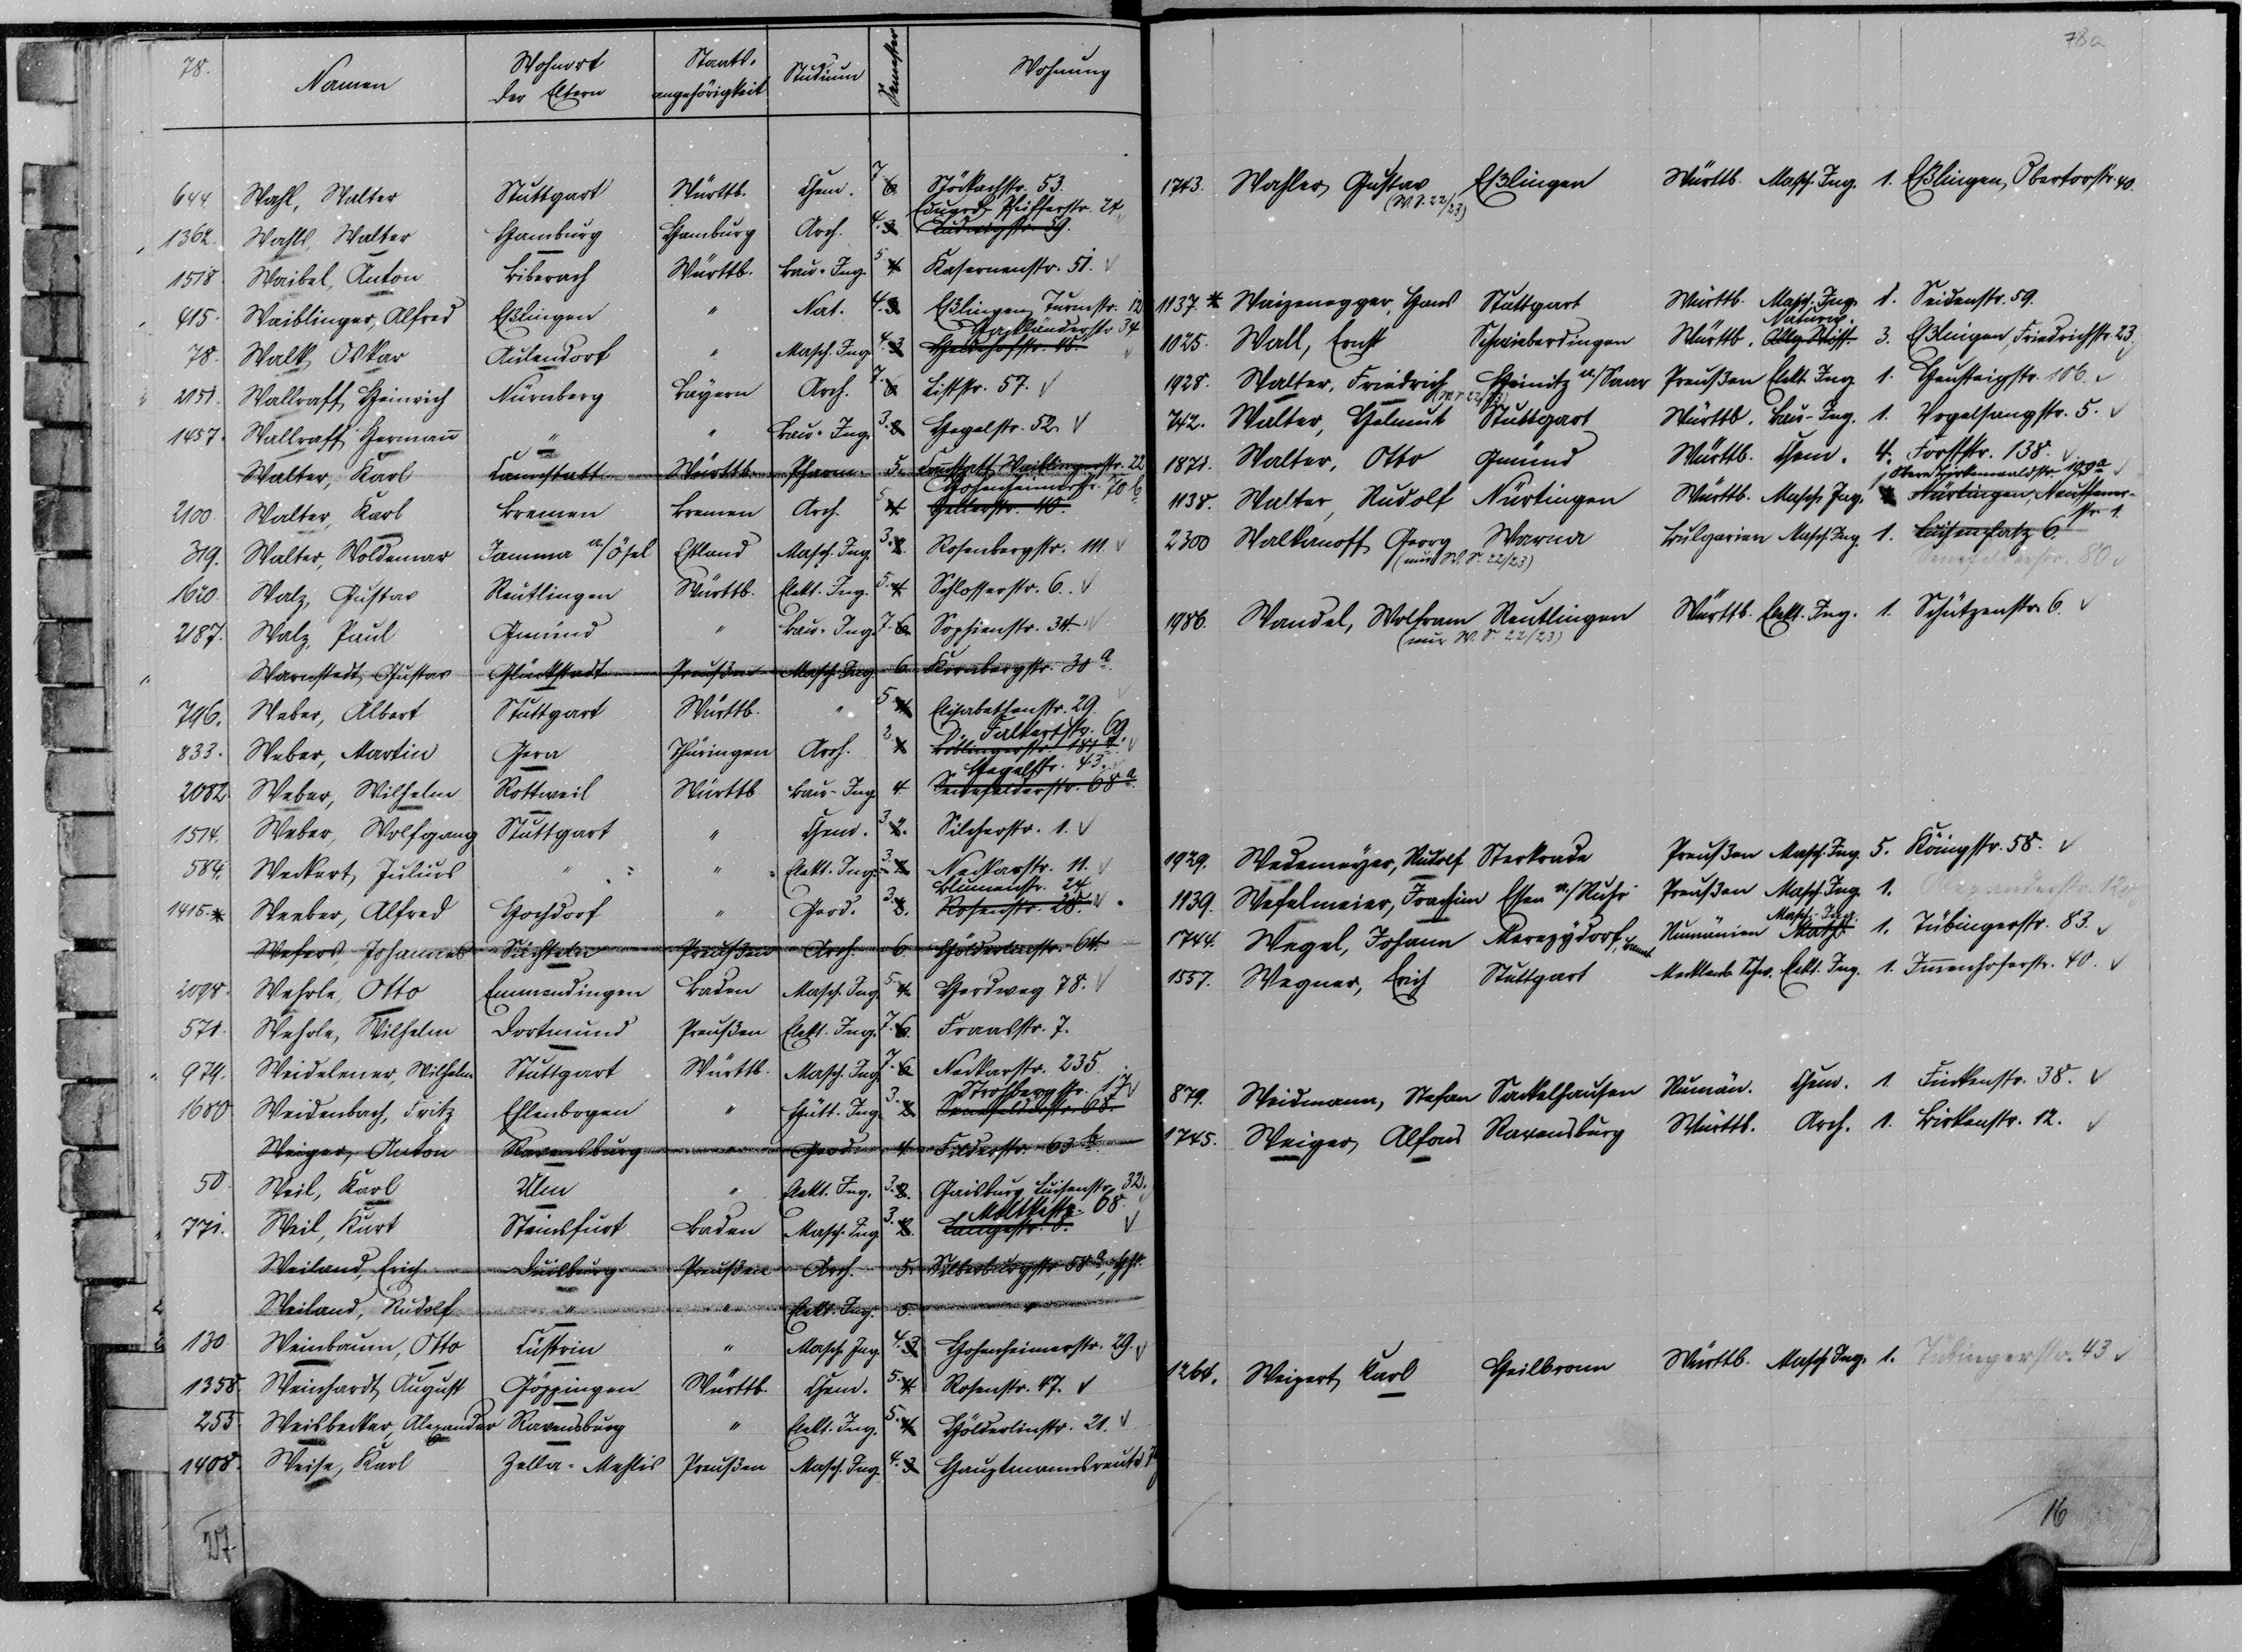 78.
Namen
Wohnort der Eltern
Staatsangehörigkeit
Studium
Semester
Wohnung
644 Wahl, Walter Stuttgart Württb. Chem. 7 6 Stöckachstr. 53.
Eduard Pfeifferstr. 24
1362. Wahls, Walter Hamburg Hamburg Arch. 4. 3. Ludwigstr. 59.
1518. Waibel, Anton Biberach Württb. Bau-Ing. 5 4 Kasernenstr. 51.
415. Waiblinger, Alfred Eßlingen " Nat. 4. 3 Eßlingen, Turmstr. 12
Hackländerstr. 34
78. Walk, Oskar Aulendorf " Masch. Ing. 4. 3
2151. Wallraff, Heinrich Nürnberg Bayern Arch. 7. 6 Listr. 57.
1457. Wallraff, Hermann " " Bau-Ing. 3. 2 Hegelstr. 52
Walter, Karl Cannstatt Württb. Pharm. 5. Cannstatt, Waiblingerstr. 22
Hohenheimerstr. 70 b
2100 Walter, Karl Bremen Bremen Arch. 5 4 Gellertstr. 10.
319. Walter, Woldemar Jamma a/Ösel Estland Masch. Ing. 3. 2. Rosenbergstr. 111
1620. Walz, Gustav Reutlingen Württb. Elekt. Ing. 5. 4 Schlosserstr. 6.
2187. Walz, Paul Gmünd " Bau-Ing. 7. 6 Sophienstr. 34
Warnstedt, Gustav Glückstadt Preußen Masch. Ing. 6. Kornbergstr. 30 a
796. Weber, Albert Stuttgart Württb. " 5 4 Elisabethenstr. 29.
Falkertstr. 69.
833. Weber, Martin Gera Thüringen Arch. 2. 1 Böblingerstr.
Hegelstr. 43.
2082. Weber, Wilhelm Rottweil Württb. Bau-Ing. 4 Senefelderstr. 68 a
1514. Weber, Wolfgang Stuttgart " Chem. 3. 2. Silcherstr. 1.
584. Weckert, Julius " " Elekt. Ing. 3. 2 Neckarstr. 11.
Blumenstr. 24
1415. * Weeber, Alfred Hochdorf " Geod. 3. 2. Rosenstr. 28.
Wefers, Johannes Süchteln Preußen Arch. 6. Hölderlinstr. 64
2098. Wehrle, Otto Emmendingen Baden Masch. Ing. 5. 4 Herdweg 78.
571. Wehrle, Wilhelm Dortmund Preußen Elekt. Ing. 7. 6. Fraasstr. 7.
974. Weidelener, Wilhelm Stuttgart Württb. Masch. Ing. 7. 6 Neckarstr. 235
Strohbergstr. 17
1680 Weidenbach, Fritz Ehlenbogen " Hütt. Ing. 3. 2 Senefelderstr. 68.
Weiger, Anton Ravensburg " Geod. 4 Filderstr. 63 b
50 Weil, Karl Ulm " Elekt. Ing. 3. 2. Gaisburg, Luisenstr. 32.
Moltkestr. 68.
771. Weil, Kurt Steinsfurt Baden Masch. Ing. 3. 2. Langestr. 8.
Weiland, Erich Duisburg Preußen Arch. 5. Silberburgstr. 58 a,
Weiland, Rudolf " " Elekt. Ing. 5. "
130. Weinbaum, Otto Cüstrin " Masch. Ing. 4. 3 Hohenheimerstr. 29.
1358. Weinhardt, August Göppingen Württb. Chem. 5. 4 Rosenstr. 47.
255 Weisbecker, Alexander Ravensburg " Elekt. Ing. 5. 4 Hölderlinstr. 21.
1408. Weise, Karl Zella-Mehlis Preußen Masch. Ing. 4. 3 Hauptmannsreute
27
78a
1743. Wahler, Gustav Eßlingen Württb. Masch. Ing. 1. Eßlingen, Obertorstr. 40.
(W. S. 22/23)
1137. * Waizenegger, Hans Stuttgart Württb. Masch. Ing. 1. Seidenstr. 59.
Naturw.
1025. Wall, Ernst Schwieberdingen Württb. Allg. Wiss. 3. Eßlingen, Friedrichstr. 23.
1928. Walter, Friedrich Heinitz a./Saar Preußen Elekt. Ing. 1. Heusteigstr. 106.
(W. S. 22/23)
742. Walter, Helmut Stuttgart Württb. Bau-Ing. 1. Vogelsangstr. 5.
1871. Walter, Otto Gmünd Württb. Chem. 4. Forststr. 138.
Obere Birkenwaldstr. 109 a
1138. Walter, Rudolf Nürtingen Württb. Masch. Ing. 1 Nürtingen, Neuffenerstr. 1.
2300 Walkanoff, Georg Warna Bulgarien Masch. Ing. 1. Luisenplatz 6.
(nur W. S. 22/23) Senefelderstr. 80
1986. Wandel, Wolfram Reutlingen Württb. Elekt. Ing. 1. Schützenstr. 6.
(nur W. S. 22/23)
1929. Wedemeyer, Rudolf Sterkrade Preußen Masch. Ing. 5. Königstr. 58.
1139. Wefelmeier, Joachim Essen a./Ruhr Preußen Masch. Ing. 1. Alexanderstr.
Masch.-Ing.
1744. Wegel, Johann Merczydorf, Banat Rumänien Math. 1. Tübingerstr. 83.
1557. Wegner, Erich Stuttgart Mecklenb. Schw. Elekt. Ing. 1. Immenhoferstr. 40.
879. Weidmann, Stefan Sackelhausen Rumän. Chem. 1. Finkenstr. 38.
1745. Weiger, Alfons Ravensburg Württb. Arch. 1. Birkenstr. 12.
1261. Weigert, Karl Heilbronn Württb. Masch. Ing. 1. Tübingerstr. 43
16